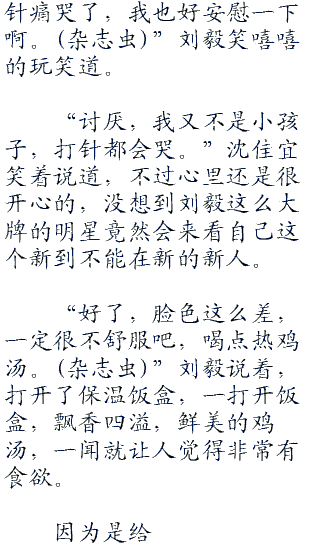 针痛哭了，我也好安慰一下
啊。(杂志虫)”刘毅笑嘻嘻
的玩笑道。
“讨厌，我又不是小孩
子，打针都会哭。”沈佳宜
笑着说道，不过心里还是很
开心的，没想到刘毅这么大
牌的明星竟然会来看自己这
个新到不能在新的新人。
“好了，脸色这么差，
一定很不舒服吧，喝点热鸡
汤。(杂志虫)”刘毅说着，
打开了保温饭盒，一打开饭
盒，飘香四溢，鲜美的鸡
汤，一闻就让人觉得非常有
食欲。
因为是给